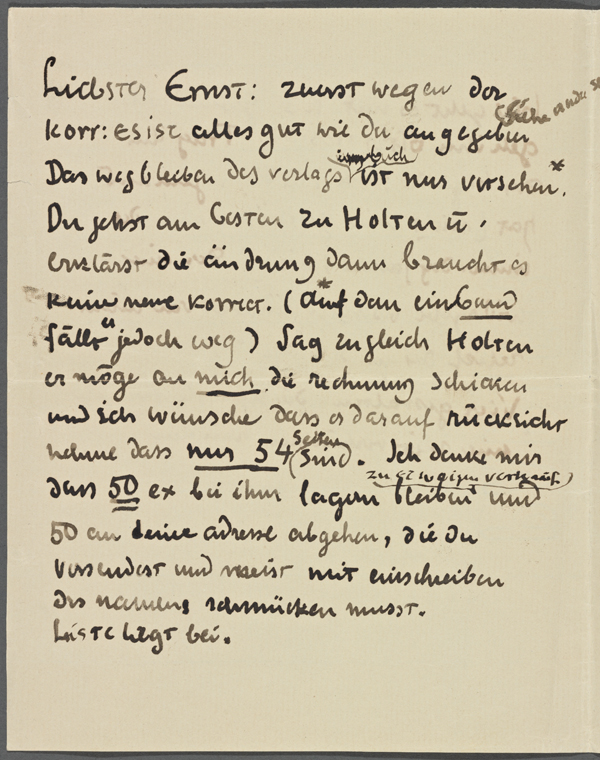 Liebster Ernst: zuerst wegen der
(Siehe andre
korr: Es ist alles gut wie du angegeben
Das wegbleiben des verlags ist nur versehen*.
im buch
Du gehst am besten zu Holten u.
erklärst die ändrung dann braucht es
keine neue korrect. (*Auf dem einband
fällt es jedoch weg) Sag zugleich Holten
er möge an mich die rechnung schicken
und ich wünsche dass er darauf rücksicht
nehme dass nur 54 Seiten sind. Ich denke mir
dass 50 ex bei ihm lagern bleiben und
(zu etwaigem verkauf)
50 an deine adresse abgehen, die du
versendest und meist mit einschreiben
des namens schmücken musst.
Liste liegt bei.